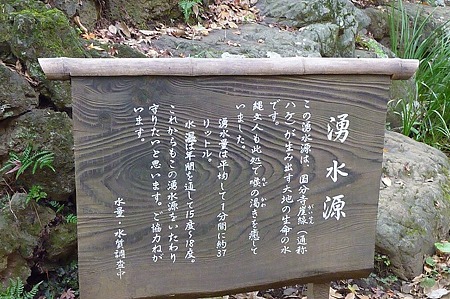 湧水源
この湧水源は、国分寺崖線（通称
がいせん
ハケ）が生み出す大地の生命の水
です。
縄文人も此処で喉の渇きを癒して
いました。
湧水量は平均して1分間に約37
リットル、
水温は年間を通して15度〜18度。
これからもこの湧水源をいたわり
守りたいと思います。ご協力ねが
います。
水量・水質調査中